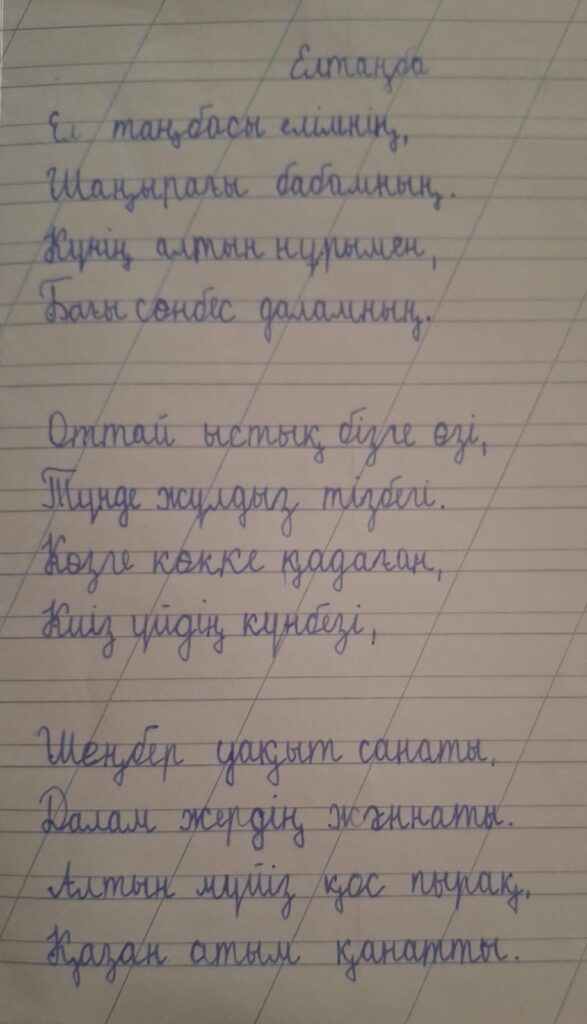 Елтаңба
Ел таңбасы елімнің,
Шаңырағы бабамның.
Күнің алтын нұрымен,
Бағы сөнбес даламның.
Оттай ыстық бізге өзі,
Түнде жұлдыз тізбегі.
Көзге көкке қадаған,
Киіз үйдің күнбезі,
Шеңбер уақыт санаты,
Далам жердің жәннаты.
Алтын мүйіз қос пырақ,
Қазан атым қанатты.